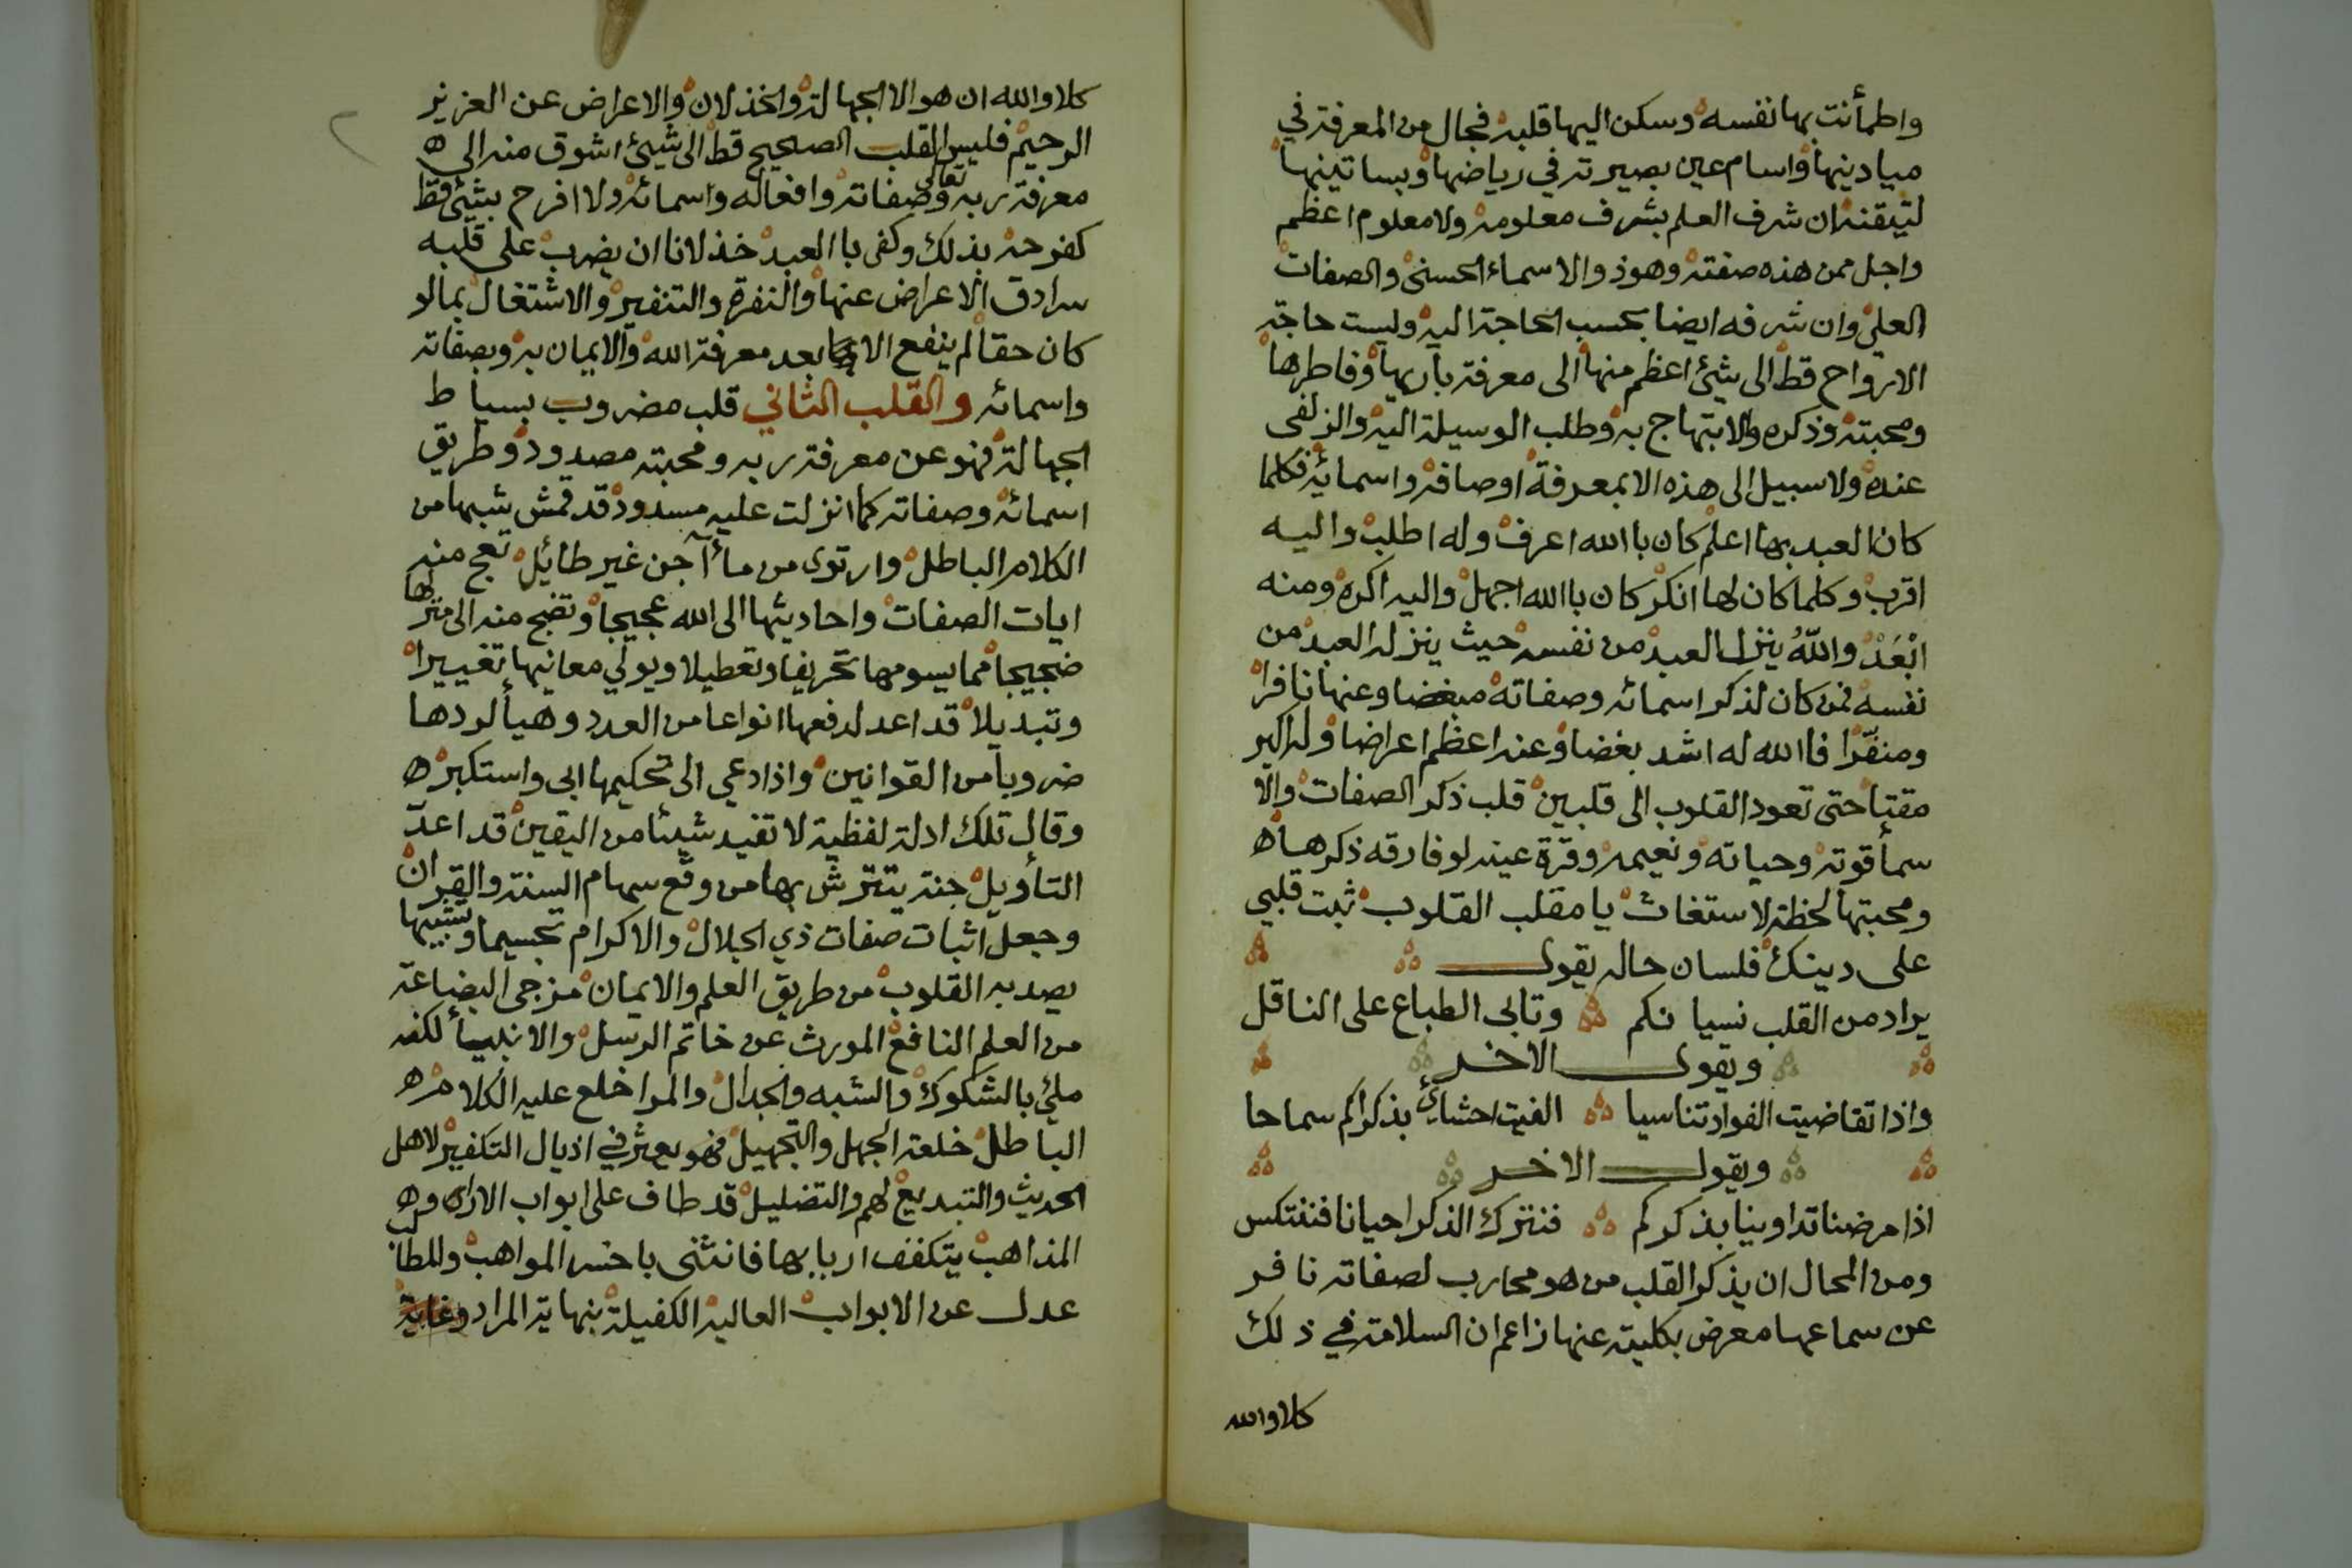 واطمأنت بها نفسه وسكن اليها قلبه فجال من المعرفة في
ميادينها واسام عين بصيرته في رياضها وبساتينها
لتيقنه ان شرف العلم بشرف معلومه ولا معلوم اعظم
واجل ممن هذه صفته وهو ذو الاسماء الحسنى والصفات
العلى وان شرفه ايضا بحسب الحاجة اليه وليست حاجة
الارواح قط الى شئ اعظم منها الى معرفة باريها وفاطرها
ومحبته وذكره والابتهاج به وطلب الوسيلة اليه والزلفى
عنده ولا سبيل الى هذه الا بمعرفة اوصافه واسمائه فكلما
كان العبد بها اعلم كان باالله اعرف وله اطلب واليه
اقرب وكلما كان لها انكر كان باالله اجهل واليه اكره ومنه
ابْعَدْ واللّهُ ينزل العبد من نفسه حيث ينزله العبد من
نفسه فمن كان لذكر اسمائه وصفاته مبغضا وعنها نافرا
ومنفّرا فاالله له اشد بغضا وعنه اعظم اعراضا وله اكبر
مقتا حتى تعود القلوب الى قلبين قلب ذكر الصفات والا
سمأ قوته وحياته ونعيمه وقرّة عينه لو فارقه ذكرها ه
ومحبتها لحظة لاستغاث يا مقلب القلوب ثبت قلبي
على دينك فلسان حاله يقول
يراد من القلب نسيانكم وتابى الطباع على الناقل
ويقول الاخر
واذا تقاضيت الفواد تناسيا الفيت احشائي بذكراكم سماحا
ويقول الاخر
اذا مرضنا تداوينا بذكركم فنترك الذكر احيانا فننتكس
ومن المحال ان يذكر القلب من هو محارب لصفاته نافر
عن سماعها معرض بكليته عنها زاعم ان السلامة في ذلك
كلا والله
كلا والله ان هو الا الجهالة والخذلان والاعراض عن العزيز
الرحيم فليس القلب الصحيح قط الى شيئ اشوق منه الى ه
معرفة ربه تعالى وصفاته وافعاله واسمائه ولا افرح بشئ قط
كفرحه بذلك وكفى باالعبد خذلانا ان يضرب على قلبه
سرادق الاعراض عنها والنفرة والتنفير والاشتغال بما لو
كان حقا لم ينفع الا بعد معرفة الله والايمان به وبصفاته
واسمائه والقلب الثاني قلب مضروب بسياط
الجهالة فهو عن معرفة ربه ومحبته مصدود وطريق
اسمائه وصفاته كما انزلت عليه مسدود قد قمش شبها من
الكلام الباطل وارتوى من مأ آجن غير طائل تعج منه
ايات الصفات واحاديثها الى الله عجيجا وتضج منه الى منزلها
ضجيجا مما يسومها تحريفا وتعطيلا ويولي معانيها تغييرا
وتبديلا قد اعد لدفعها انواعا من العدد وهيأ لردها
ضروبا من القوانين واذا دعي الى تحكيمها ابى واستكبر ه
وقال تلك ادلة لفظية لا تفيد شيئا من اليقين قد اعدّ
التأويل جنة يتترش بها من وقع سهام السنة والقران
وجعل اثبات صفات ذي الجلال والاكرام تجسيما وتشبيها
يصد به القلوب من طريق العلم والايمان مزجى البضاعة
من العلم النافع المورث عن خاتم الرسل والانبيأ لكنه
ملئ بالشكوك والشبه والجدال والمرا خلع عليه الكلام ه
الباطل خلعة الجهل والتجهيل فهو يعثر في اذيال التكفير لاهل
الحديث والتبديع لهم والتضليل قد طاف على ابواب الاراء و ه
المذاهب يتكفف اربابها فانثنى باخسر المواهب والمطالب
عدل عن الابواب العالية الكفيلة بنهاية المراد وغاية